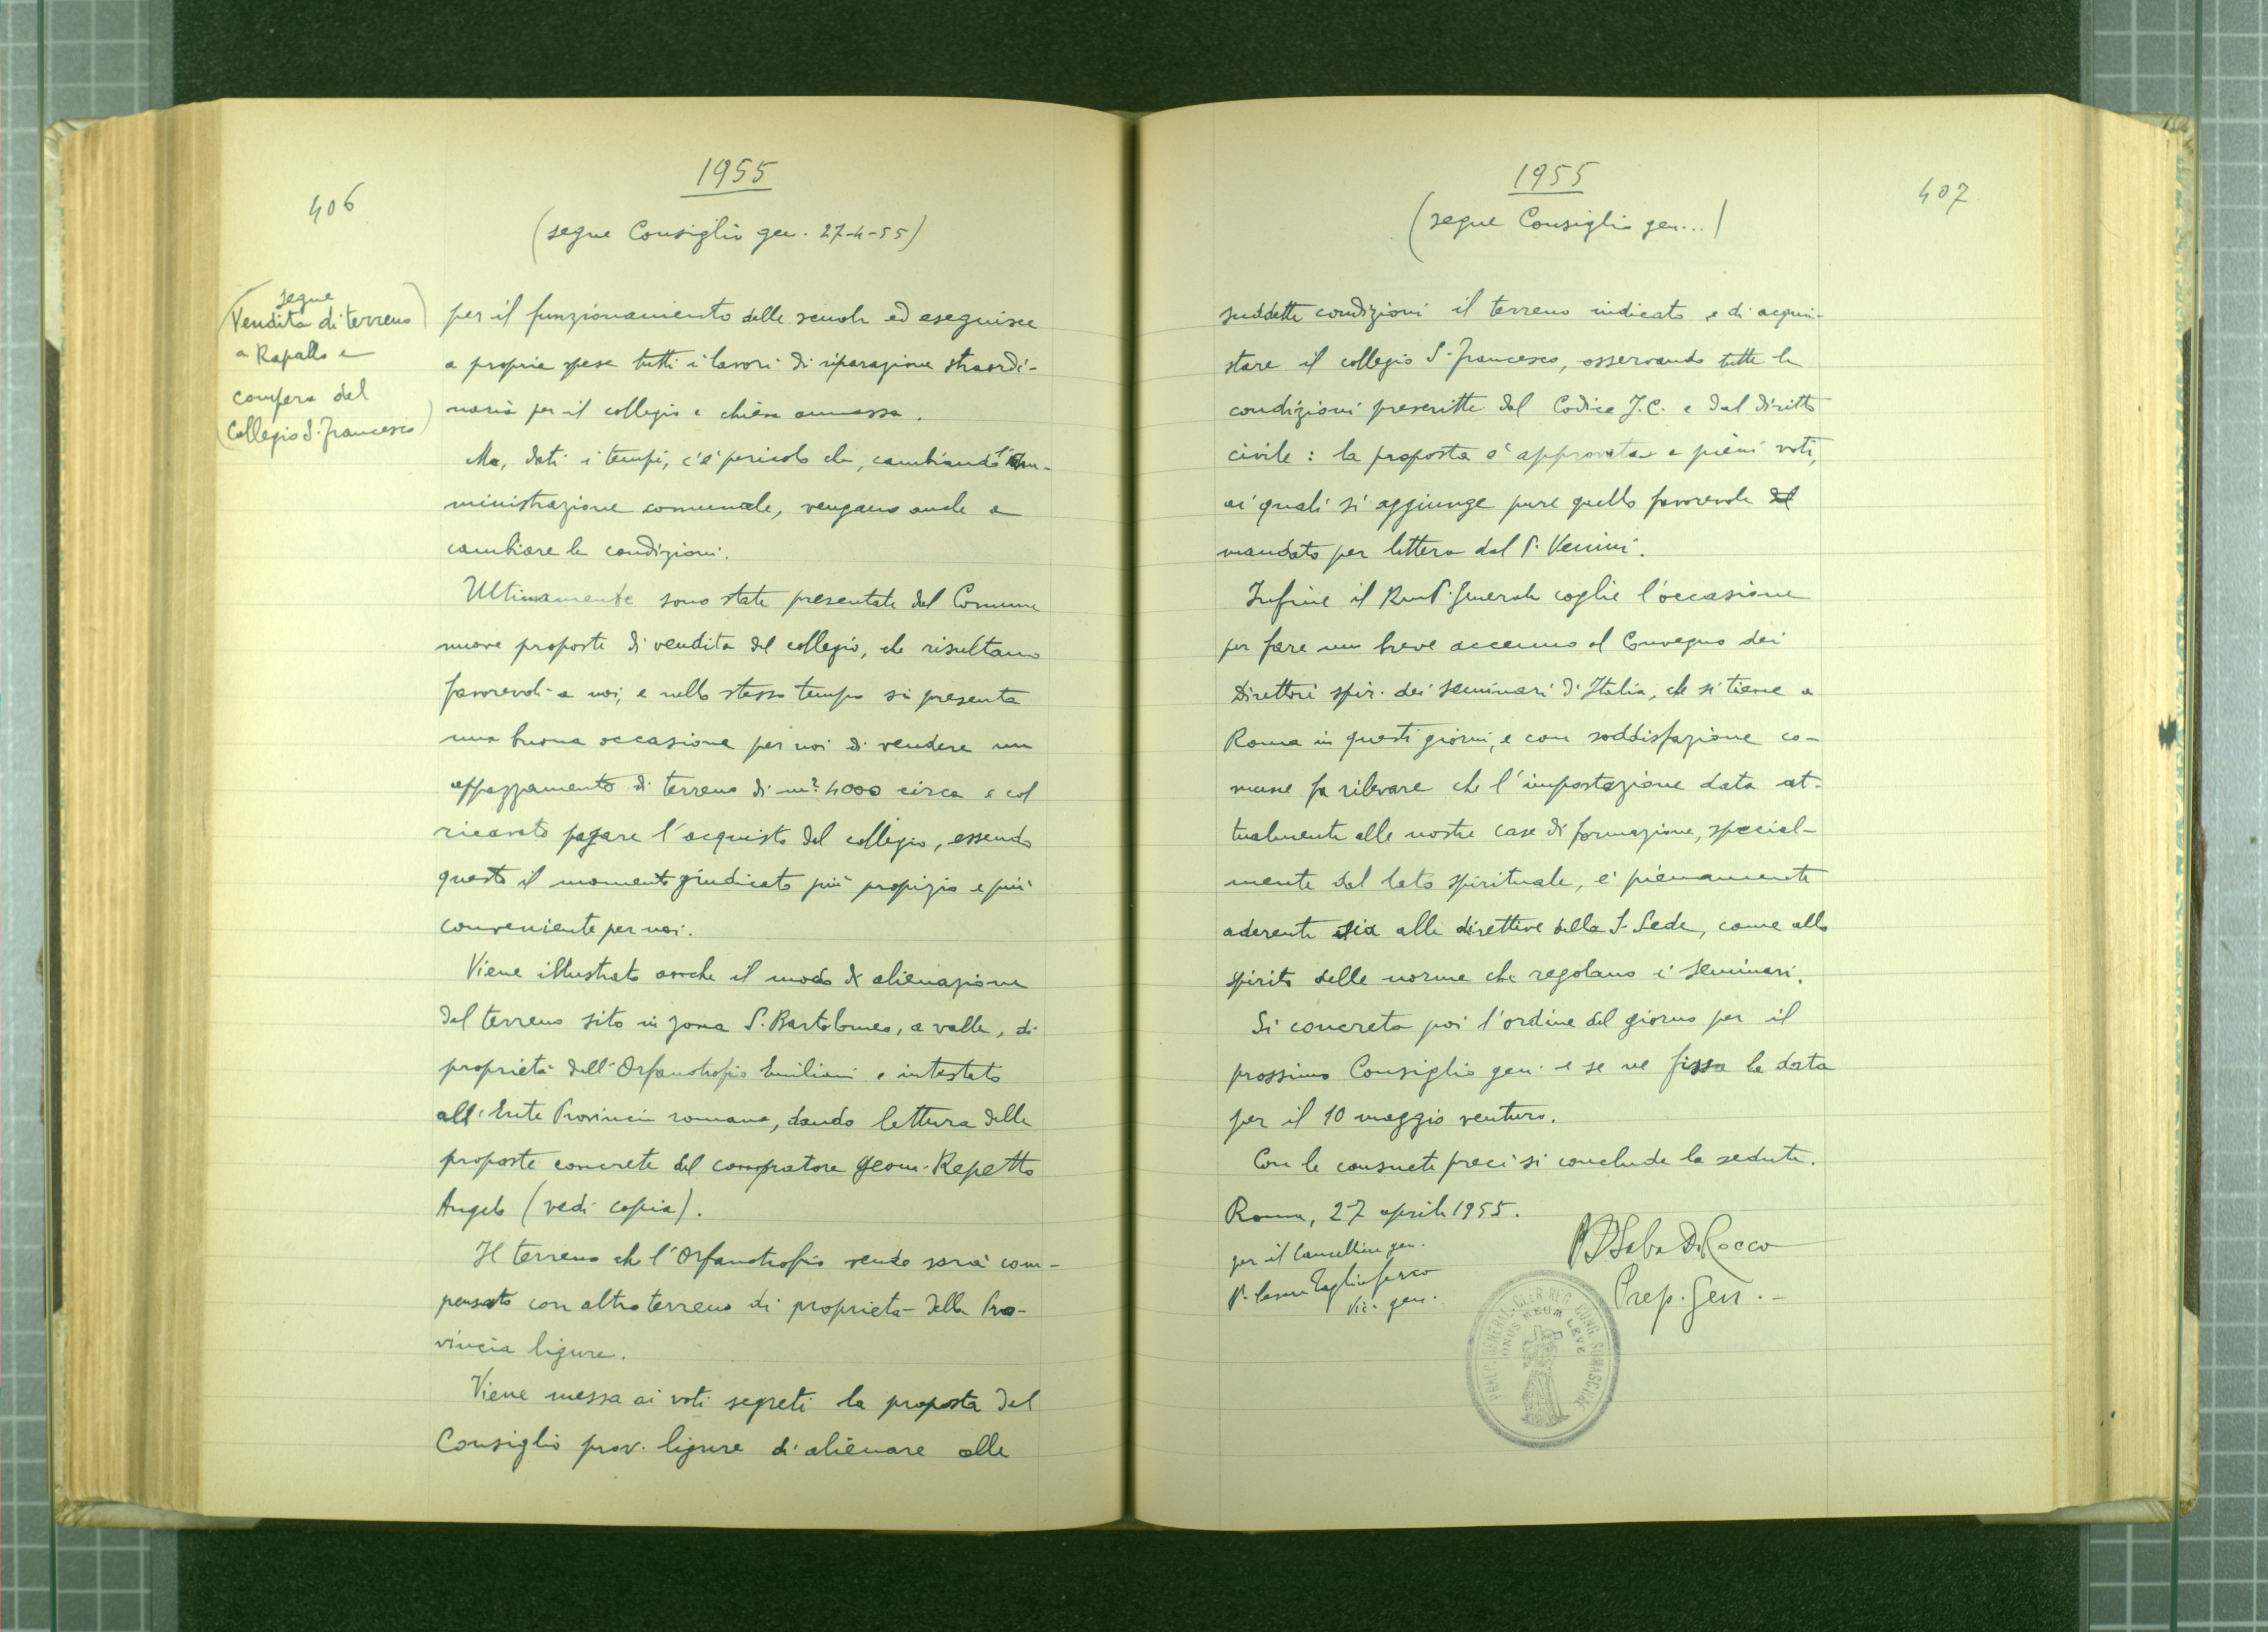 406
1955
(segue Consiglio gen. 27-4-55)
(segue
Vendita di terreno
a Rapallo e
compera del
Collegio S. Francesco)
per il funzionamento delle scuole ed eseguisce
a proprie spese tutti i lavori di riparazione straordi-
naria per il collegio e chiesa annessa.
Ma, dati i tempi, c'è pericolo che, cambiando l'am-
ministrazione comunale, vengano anche a
cambiare le condizioni.
Ultimamente sono state presentate dal Comune
nuove proposte di vendita del collegio, che risultano
favorevoli a noi, e nello stesso tempo si presenta
una buona occasione per noi di vendere un
appezzamento di terreno di m² 4000 circa e col
ricavato pagare l'acquisto del collegio, essendo
questo il momento giudicato più propizio e più
conveniente per noi.
Viene illustrato anche il modo di alienazione
del terreno sito in zona S. Bartolomeo, a valle, di
proprietà dell'Orfanotrofio Emiliani e intestato
all'Ente Provincia romana, dando lettura delle
proposte concrete del compratore geom. Repetto
Angelo (vedi copia).
Il terreno che l'Orfanotrofio vende sarà com-
pensato con altro terreno di proprietà della Pro-
vincia ligure.
Viene messa ai voti segreti la proposta del
Consiglio prov. ligure di alienare alle
407
1955
(segue Consiglio gen...)
suddette condizioni il terreno indicato e di acqui-
stare il collegio S. Francesco, osservando tutte le
condizioni prescritte dal Codice J.C. e dal diritto
civile: la proposta è approvata a pieni voti,
ai quali si aggiunge pure quello favorevole del
mandato per lettera dal P. Venini.
Infine il Rev.P. Generale coglie l'occasione
per fare un breve accenno al Convegno dei
Direttori spir. dei seminari d'Italia, che si tiene a
Roma in questi giorni, e con soddisfazione co-
mune fa rilevare che l'impostazione data at-
tualmente alle nostre case di formazione, special-
mente dal lato spirituale, è pienamente
aderente sia alle direttive della S. Sede, come allo
spirito delle norme che regolano i seminari.
Si concreta poi l'ordine del giorno per il
prossimo Consiglio gen. e se ne fissa la data
per il 10 maggio venturo.
Con le consuete preci si conclude la seduta.
Roma, 27 aprile 1955.
per il Cancelliere gen.
P. Cesare Tagliaferro
Vic. gen.
P. Saba De Rocco
Prep. Gen.
PRAEP. GENERAL. CLER. REG. CONG. SOMASCHAE
ONUS MEUM LEVE